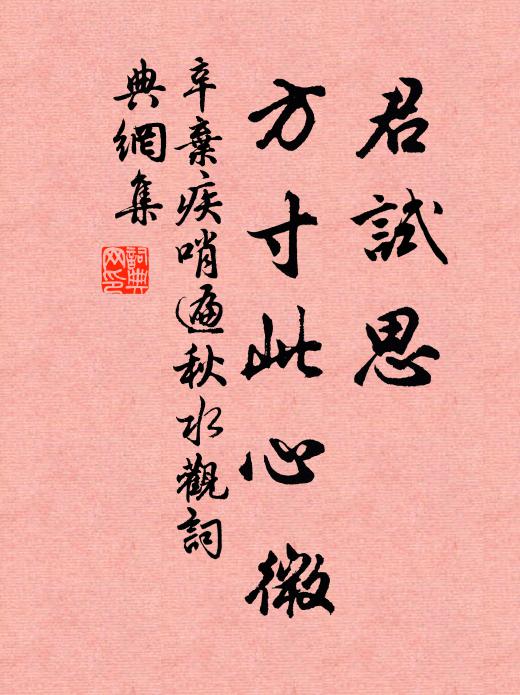 君試思
方寸此心微
辛棄疾哨遍秋水觀詞
典網集
詞典
网印